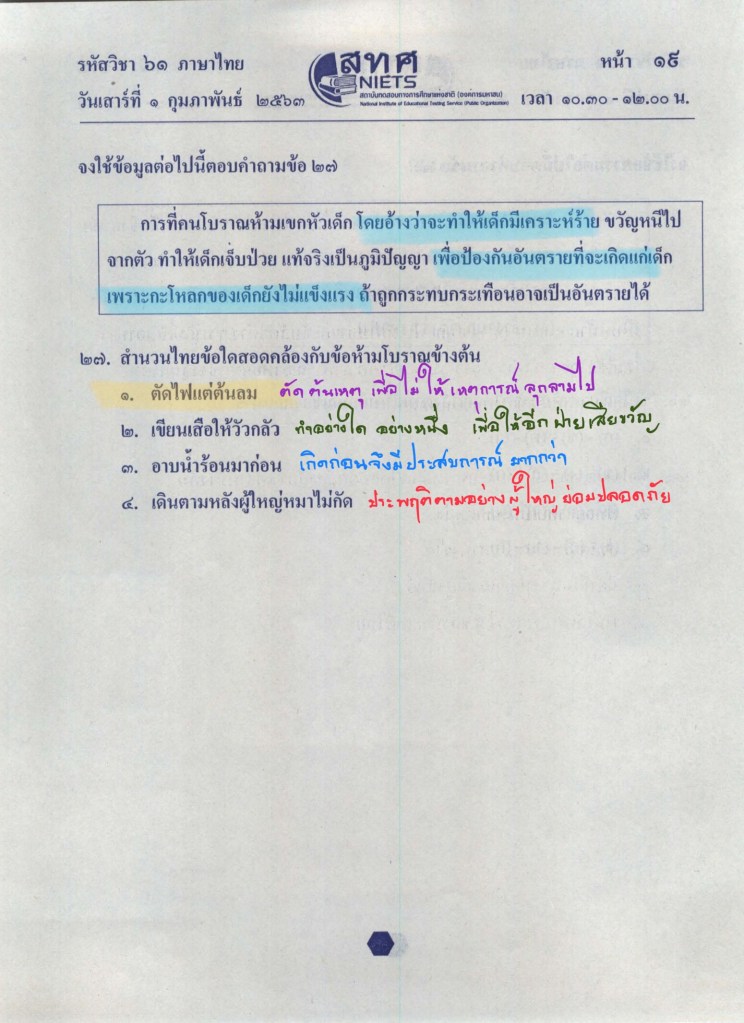 รหัสวิชา ๖๑ ภาษาไทย
สทศ
NIETS
สถาบันทดสอบทางการศึกษาแห่งชาติ (องค์การมหาชน)
National Institute of Educational Testing Service (Public Organization)
หน้า ๑๙
วันเสาร์ที่ ๑ กุมภาพันธ์ ๒๕๖๓
เวลา ๑๐.๓๐ - ๑๒.๐๐ น.
จงใช้ข้อมูลต่อไปนี้ตอบคำถามข้อ ๒๗
การที่คนโบราณห้ามเขกหัวเด็ก โดยอ้างว่าจะทำให้เด็กมีเคราะห์ร้าย ขวัญหนีไป
จากตัว ทำให้เด็กเจ็บป่วย แท้จริงเป็นภูมิปัญญา เพื่อป้องกันอันตรายที่จะเกิดแก่เด็ก
เพราะกะโหลกของเด็กยังไม่แข็งแรง ถ้าถูกกระทบกระเทือนอาจเป็นอันตรายได้
๒๗. สำนวนไทยข้อใดสอดคล้องกับข้อห้ามโบราณข้างต้น
๑. ตัดไฟแต่ต้นลม ตัดต้นเหตุ เพื่อไม่ให้เหตุการณ์ลุกลามไป
๒. เขียนเสือให้วัวกลัว ทำอย่างใดอย่างหนึ่ง เพื่อให้อีกฝ่ายเสียขวัญ
๓. อาบน้ำร้อนมาก่อน เกิดก่อนจึงมีประสบการณ์มากกว่า
๔. เดินตามหลังผู้ใหญ่หมาไม่กัด ประพฤติตามอย่างผู้ใหญ่ย่อมปลอดภัย